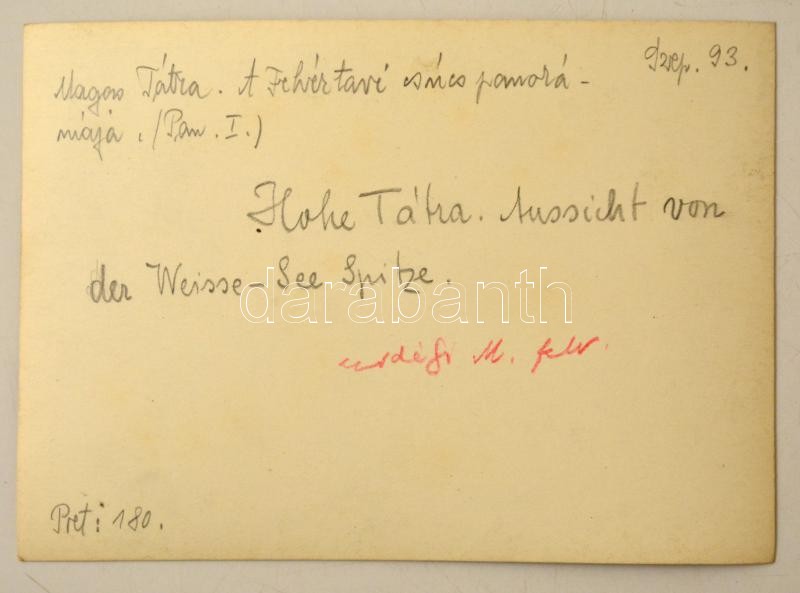 Szep. 93.
Magas Tátra. A Fehértavi csúcs panorá-
mája. (Pan. I.)
Hohe Tátra. Aussicht von
der Weisse-See Spitze.
darabanth
M. felv.
Pret: 180.